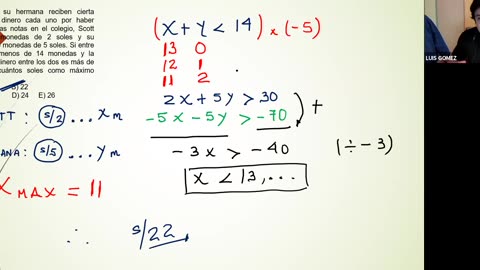 su hermana reciben cierta
dinero cada uno por haber
as notas en el colegio, Scott
monedas de 2 soles y su
monedas de 5 soles. Si entre
menos de 14 monedas y la
dinero entre los dos es más de
cuántos soles como máximo
B) 22
D) 24 E) 26
(x + y < 14) x (-5)
13 0
12 1
11 2
2x + 5y > 30
-5x - 5y > -70
+
-3x > -40
(÷ - 3)
x < 13,...
TT: s/2 ... x m
ANA: s/5 ... y m
X MAX = 11
∴ s/22
LUIS GOMEZ